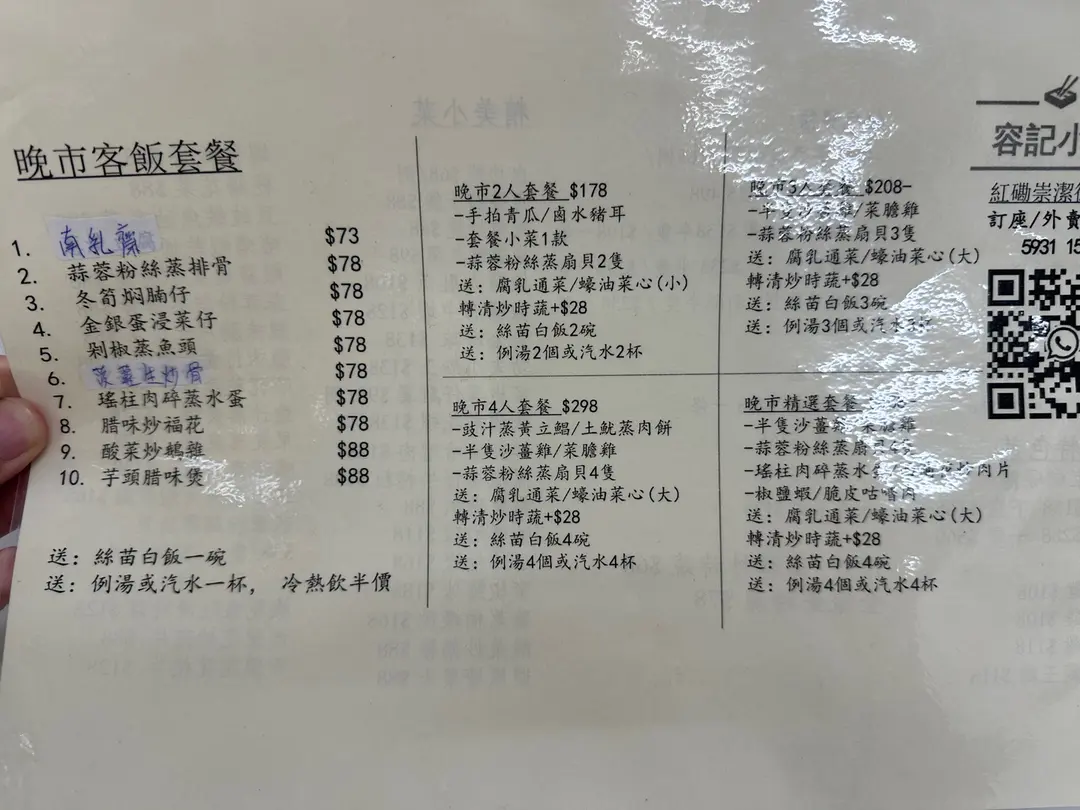 晚市客飯套餐
1. 南乳齋 $73
2. 蒜蓉粉絲蒸排骨 $78
3. 冬筍焖腩仔 $78
4. 金銀蛋浸菜仔 $78
5. 剁椒蒸魚頭 $78
6. 炒骨 $78
7. 瑤柱肉碎蒸水蛋 $78
8. 腊味炒福花 $78
9. 酸菜炒鵝雜 $88
10. 芋頭腊味煲 $88
送：絲苗白飯一碗
送：例湯或汽水一杯， 冷熱飲半價
晚市2人套餐 $178
-手拍青瓜/鹵水豬耳
-套餐小菜1款
-蒜蓉粉絲蒸扇貝2隻
送：腐乳通菜/蠔油菜心(小)
轉清炒時蔬+$28
送：絲苗白飯2碗
送：例湯2個或汽水2杯
晚市3人套餐 $208-
-半隻沙薑雞/菜膽雞
-蒜蓉粉絲蒸扇貝3隻
送：腐乳通菜/蠔油菜心(大)
轉清炒時蔬+$28
送：絲苗白飯3碗
送：例湯3個或汽水3杯
晚市4人套餐 $298
-豉汁蒸黃立鯧/土魷蒸肉餅
-半隻沙薑雞/菜膽雞
-蒜蓉粉絲蒸扇貝4隻
送：腐乳通菜/蠔油菜心(大)
轉清炒時蔬+$28
送：絲苗白飯4碗
送：例湯4個或汽水4杯
晚市精選套餐
-半隻沙薑雞/菜膽雞
-蒜蓉粉絲蒸扇貝4隻
-瑤柱肉碎蒸水蛋/炒肉片
-椒鹽蝦/脆皮咕嚕肉
送：腐乳通菜/蠔油菜心(大)
轉清炒時蔬+$28
送：絲苗白飯4碗
送：例湯4個或汽水4杯
容記小
紅磡崇潔街
訂座/外賣
5931 15